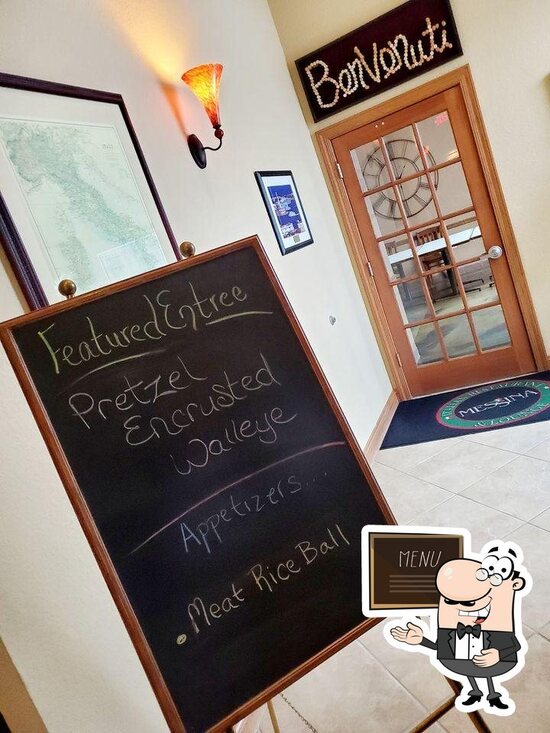 BenVenuti
Featured Entree
Pretzel
Encrusted
Walleye
Appetizers....
• Meat Rice Ball
MESSINA
MENU